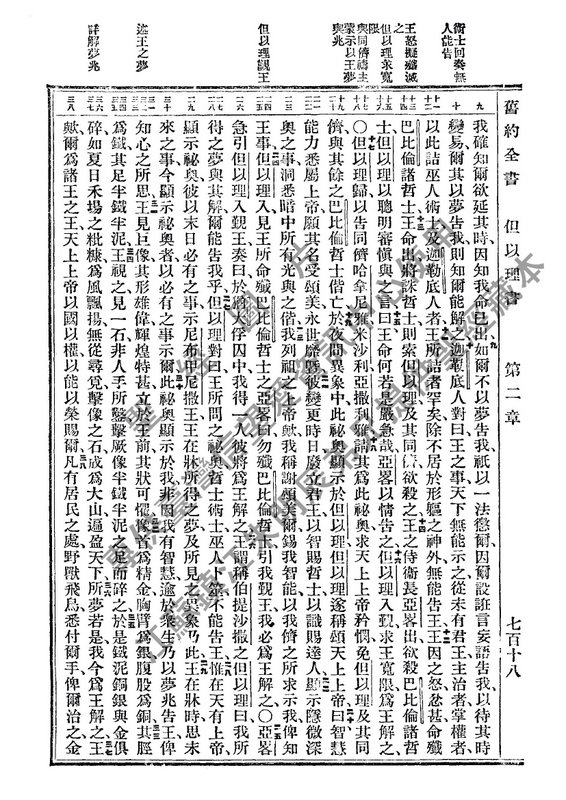 舊約全書 但以理書 第二章 七百十八
術士回奏無
人能告
王怒擬盡滅
之
但以理求寬
限
與同儕禱主
蒙示以王夢
與兆
但以理覲王
述王之夢
詳解夢兆
我確知爾欲延其時因知我命已出如爾不以夢告我祇以一法懲爾因爾設誑言妄語告我以待其時
變易爾其以夢告我則知爾能解之迦勒底人對曰王之事天下無能示之從未有君王主治者掌權者
以此詰巫人術士及迦勒底人者王所詰者罕矣除不居於形軀之神外無能告王王因之怒忿甚命殲
巴比倫諸哲士王命出將誅哲士則索但以理及其同儕欲殺之王之侍衛長亞畧出欲殺巴比倫諸哲
士但以理以聰明審慎與之言曰王命何若是嚴急哉亞畧以情告之但以理入覲求王寬限爲王解之
〇但以理歸以告同儕哈拿尼雅米沙利亞撒利雅請其爲此祕奧求天上上帝矜憫免但以理及其同
儕與其餘之巴比倫哲士偕亡於夜間異象中此祕奧顯示於但以理但以理遂稱頌天上上帝曰智慧
能力悉屬上帝願其名受頌美永世靡曁彼變更時日廢立君王以智賜哲士以識賜達人顯示隱微深
奧之事洞悉暗中所有光與之偕我列祖之上帝歟我稱謝頌美爾錫我智能以我儕之所求示我俾知
王事但以理入見王所命殲巴比倫哲士之亞畧曰勿殲巴比倫哲士引我覲王我必爲王解之〇亞畧
急引但以理入覲王奏曰於猶大俘囚中我得一人彼將爲王解之王謂稱伯提沙撒之但以理曰我所
得之夢與其解爾能告我乎但以理對曰王所問之祕奧哲士術士巫人卜筮不能告王惟在天有上帝
顯示祕奧彼以末日必有之事示尼布甲尼撒王王在牀所得之夢及所見之異象乃此王在牀時思未
來之事今顯示祕奧者以必有之事示爾此祕奧顯示於我非因我有智慧逾於衆生乃以夢兆告王俾
知心之所思王見巨像其形雄偉輝煌特甚立於王前其狀可懼像首爲精金胸臂爲銀腹股爲銅其脛
爲鐵其足半鐵半泥王視之見一石非人手所鑿擊厥像半鐵半泥之足而碎之於是鐵泥銅銀與金俱
碎如夏日禾場之粃糠爲風飄揚無從尋覓擊像之石成爲大山遍盈天下所夢若是我今爲王解之王
歟爾爲諸王之王天上上帝以國以權以能以榮賜爾凡有居民之處野獸飛鳥悉付爾手俾爾治之金